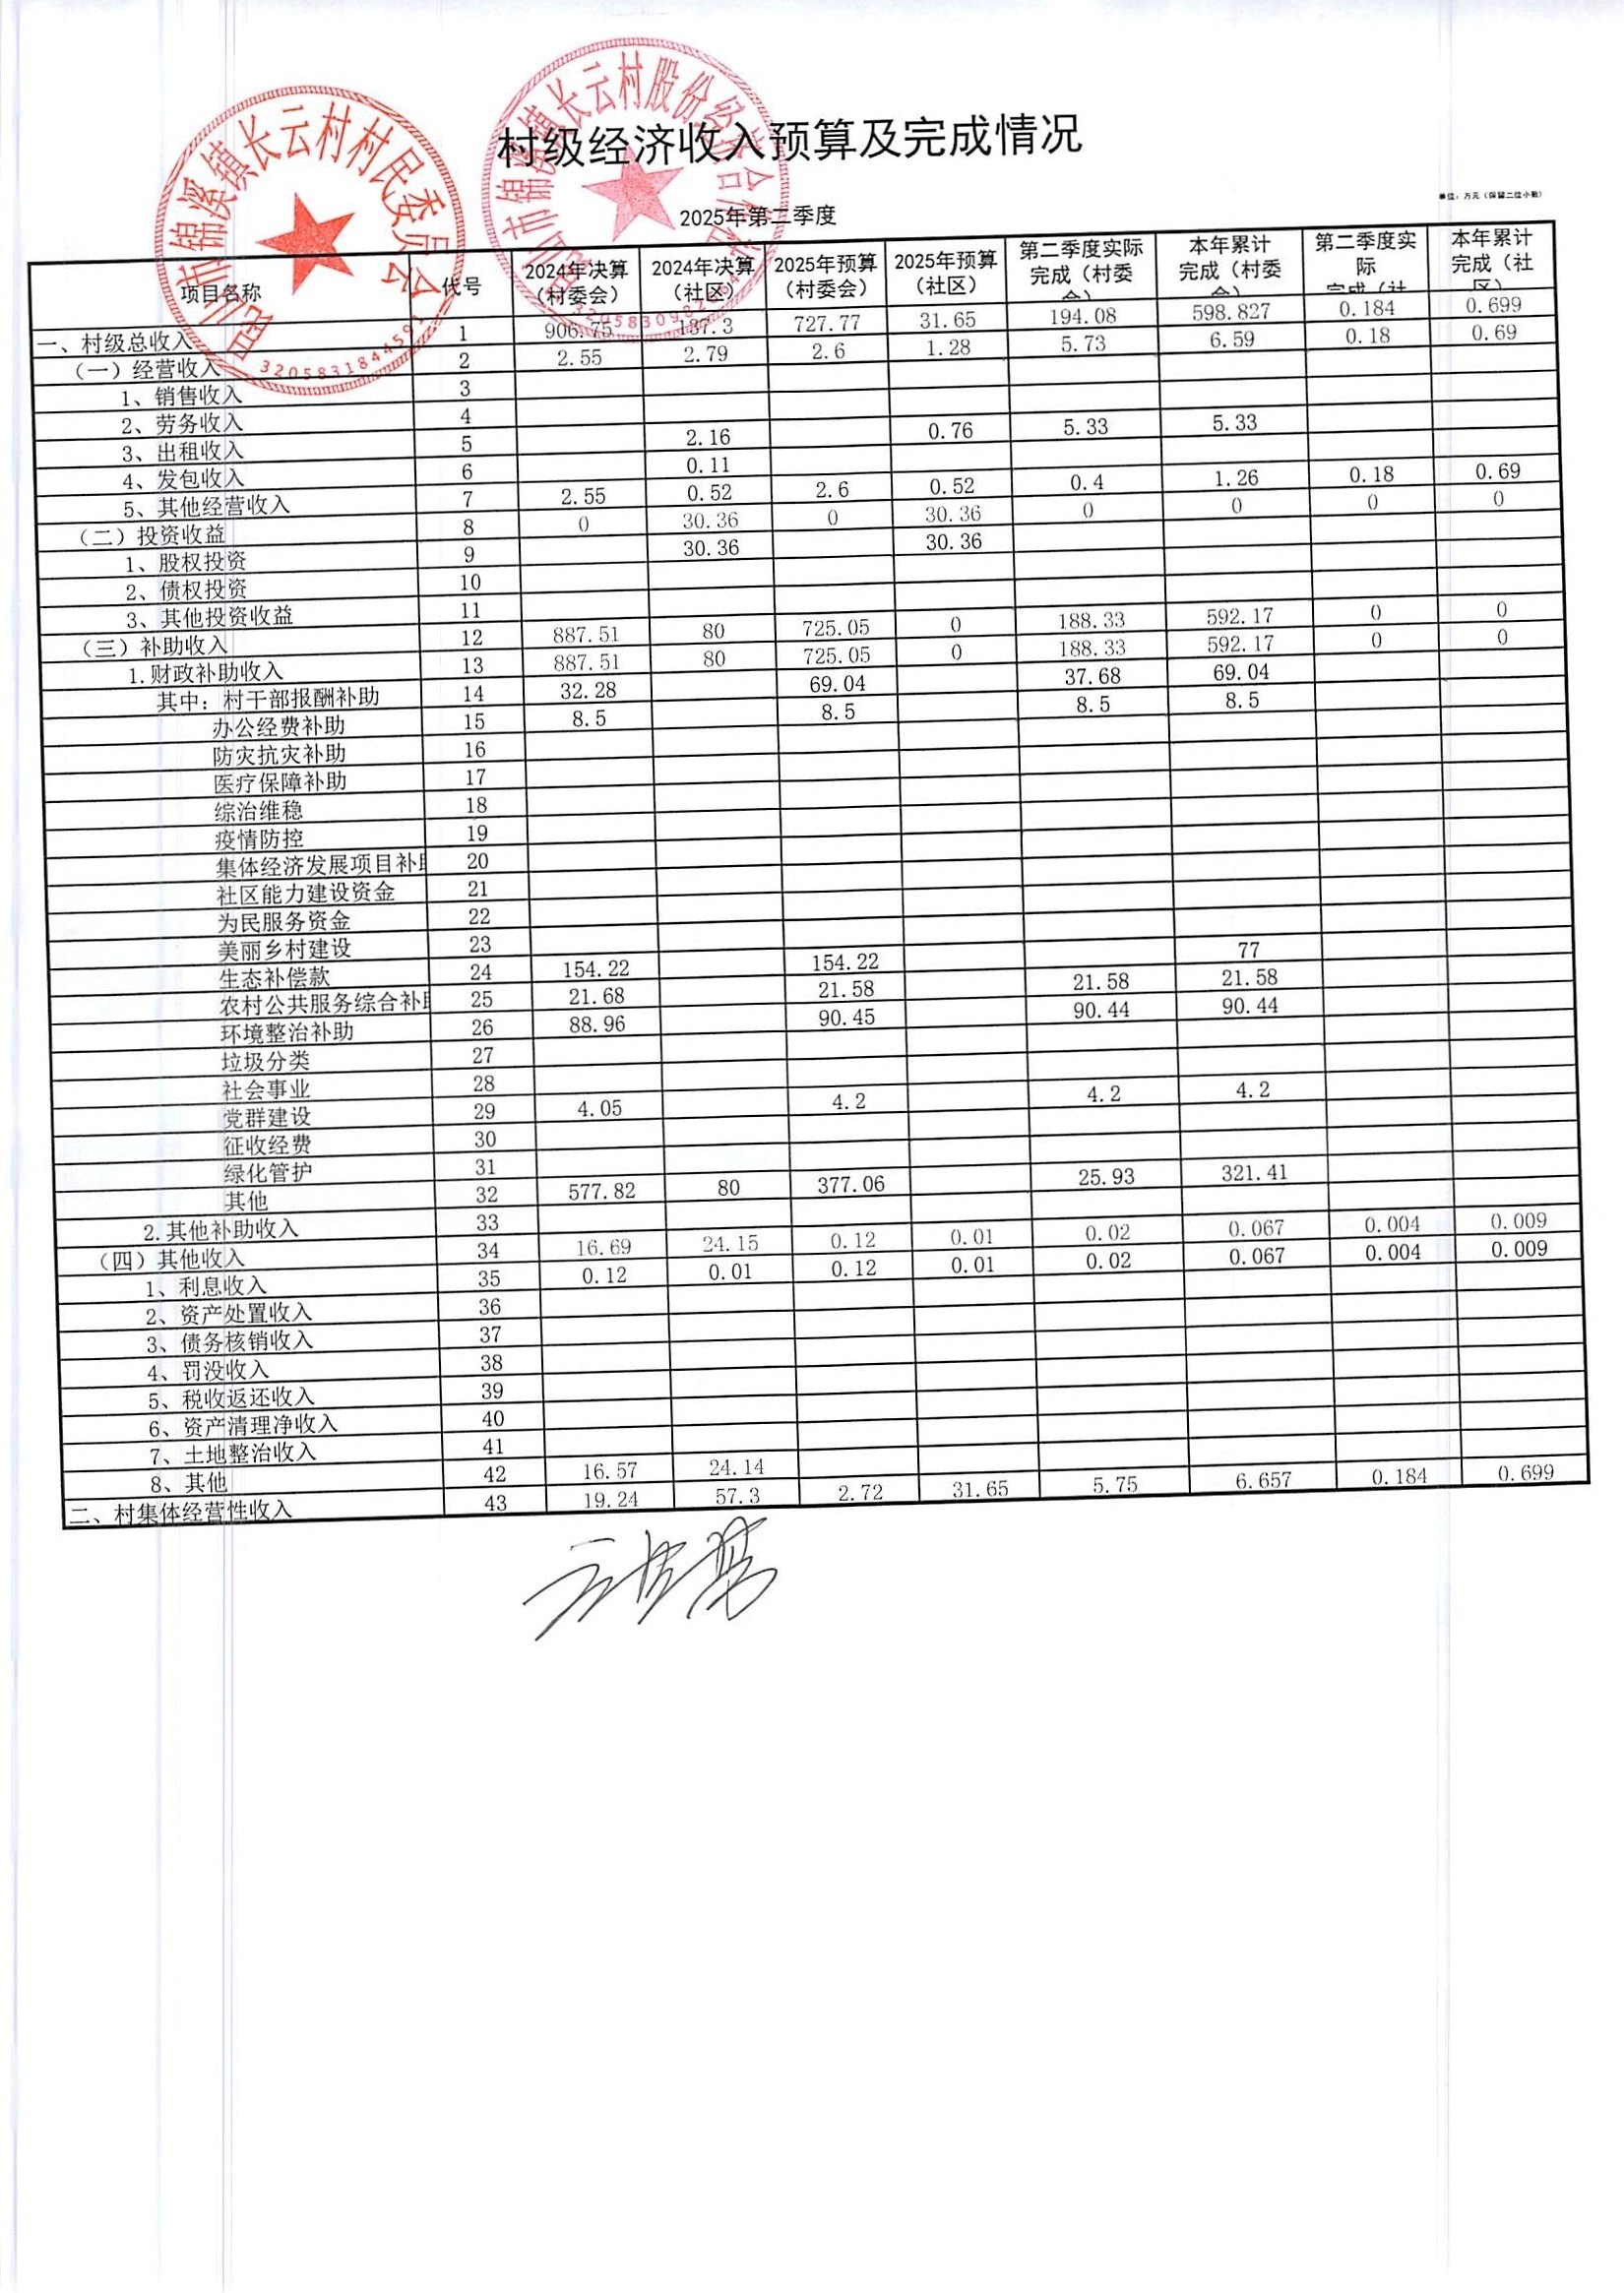 村级经济收入预算及完成情况
2025年第二季度
单位：万元（保留二位小数）
项目名称 代号 2024年决算（村委会） 2024年决算（社区） 2025年预算（村委会） 2025年预算（社区） 第二季度实际完成（村委会） 本年累计完成（村委会） 第二季度实际完成（社 本年累计完成（社区）
一、村级总收入 1 906.75 137.3 727.77 31.65 194.08 598.827 0.184 0.699
（一）经营收入 2 2.55 2.79 2.6 1.28 5.73 6.59 0.18 0.69
1、销售收入 3
2、劳务收入 4
3、出租收入 5 2.16 0.76 5.33 5.33
4、发包收入 6 0.11
5、其他经营收入 7 2.55 0.52 2.6 0.52 0.4 1.26 0.18 0.69
（二）投资收益 8 0 30.36 0 30.36 0 0 0 0
1、股权投资 9 30.36 30.36
2、债权投资 10
3、其他投资收益 11
（三）补助收入 12 887.51 80 725.05 0 188.33 592.17 0 0
1.财政补助收入 13 887.51 80 725.05 0 188.33 592.17 0 0
其中：村干部报酬补助 14 32.28 69.04 37.68 69.04
办公经费补助 15 8.5 8.5 8.5 8.5
防灾抗灾补助 16
医疗保障补助 17
综治维稳 18
疫情防控 19
集体经济发展项目补 20
社区能力建设资金 21
为民服务资金 22
美丽乡村建设 23
生态补偿款 24 154.22 154.22 77
农村公共服务综合补 25 21.68 21.58 21.58 21.58
环境整治补助 26 88.96 90.45 90.44 90.44
垃圾分类 27
社会事业 28
党群建设 29 4.05 4.2 4.2 4.2
征收经费 30
绿化管护 31
其他 32 577.82 80 377.06 25.93 321.41
2.其他补助收入 33
（四）其他收入 34 16.69 24.15 0.12 0.01 0.02 0.067 0.004 0.009
1、利息收入 35 0.12 0.01 0.12 0.01 0.02 0.067 0.004 0.009
2、资产处置收入 36
3、债务核销收入 37
4、罚没收入 38
5、税收返还收入 39
6、资产清理净收入 40
7、土地整治收入 41
8、其他 42 16.57 24.14
二、村集体经营性收入 43 19.24 57.3 2.72 31.65 5.75 6.657 0.184 0.699
市锦溪镇长云村村民委员会
市锦溪镇长云村股份经